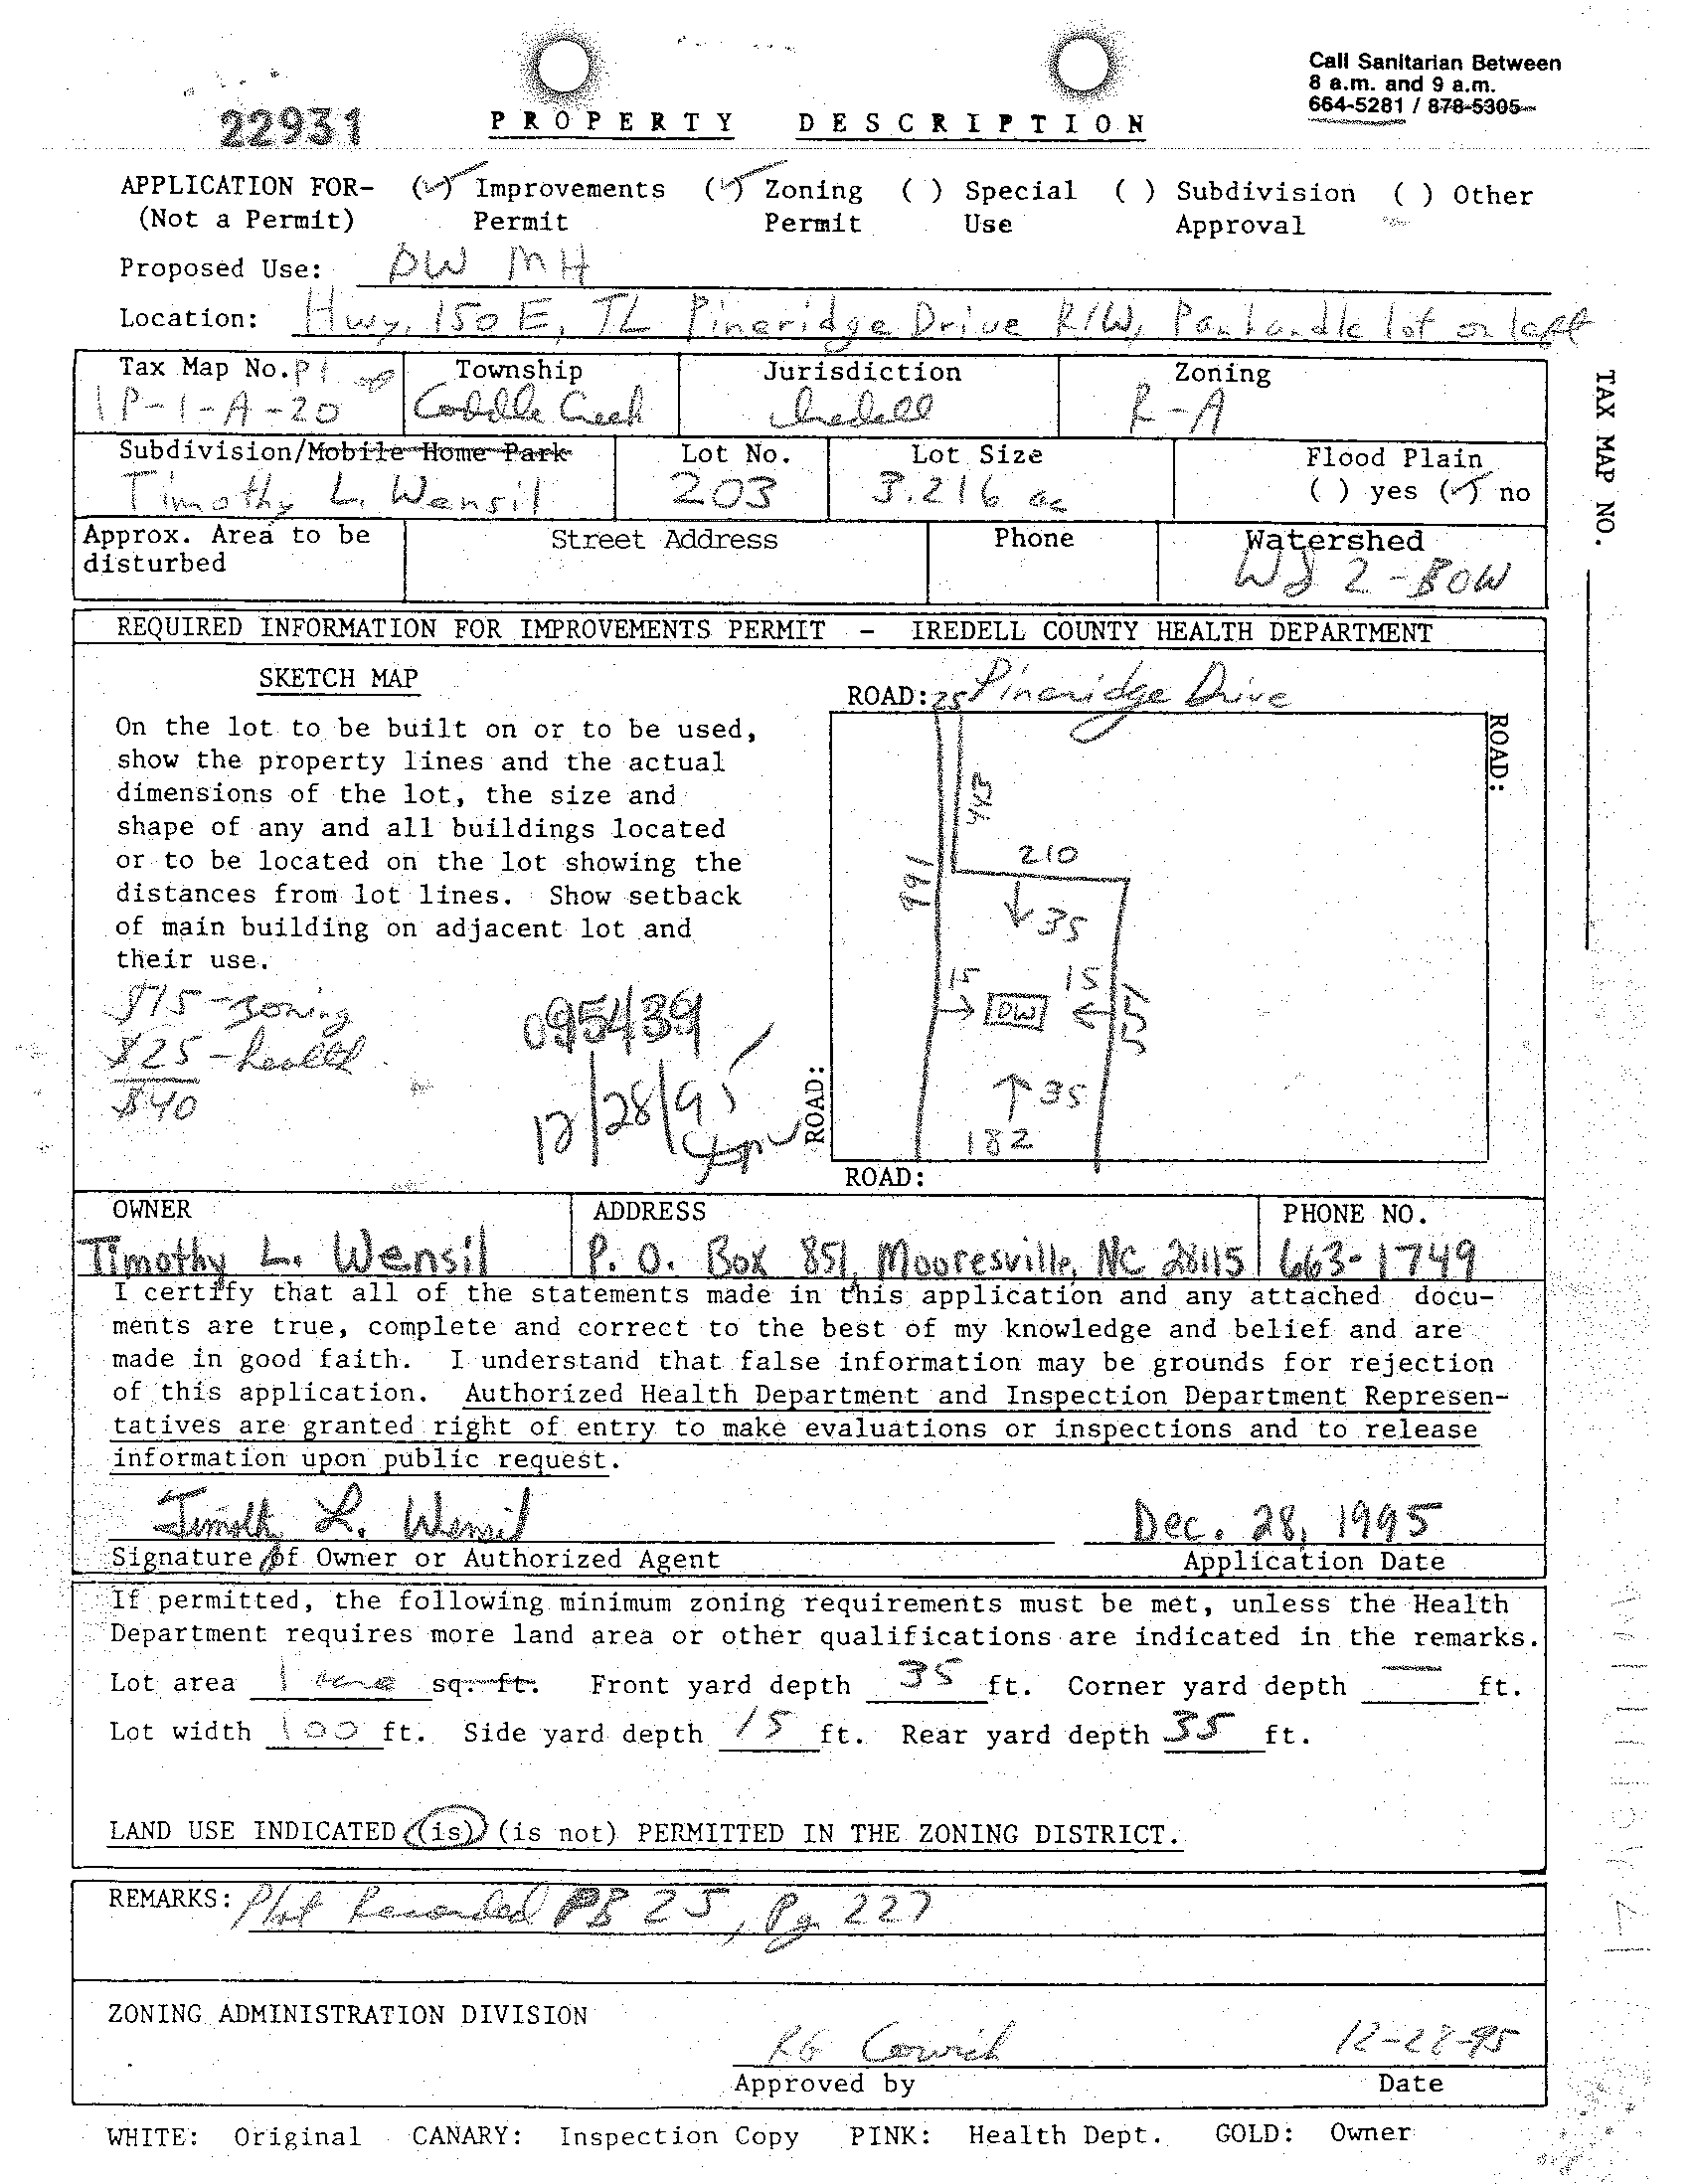 Call Sanitarian Between
8 a.m. and 9 a.m.
664-5281 / 878-5305
22931
PROPERTY DESCRIPTION
APPLICATION FOR- (✓) Improvements (✓) Zoning ( ) Special ( ) Subdivision ( ) Other
(Not a Permit) Permit Permit Use Approval
Proposed Use: DW MH
Location: Hwy. 150 E, TL Pineridge Drive R/W, Panhandle lot on left
Tax Map No. P1 Township Jurisdiction Zoning
1P-1-A-20 Coddle Creek Iredell R-A
Subdivision/Mobile Home Park Lot No. Lot Size Flood Plain
Timothy L. Wensil 203 3.216 ac ( ) yes (✓) no
Approx. Area to be Street Address Phone Watershed
disturbed
WS 2-BOW
TAX MAP NO.
REQUIRED INFORMATION FOR IMPROVEMENTS PERMIT - IREDELL COUNTY HEALTH DEPARTMENT
SKETCH MAP
On the lot to be built on or to be used,
show the property lines and the actual
dimensions of the lot, the size and
shape of any and all buildings located
or to be located on the lot showing the
distances from lot lines. Show setback
of main building on adjacent lot and
their use.
$15-zoning
$25-health
$40
095439
12/28/95
ROAD: 25 Pineridge Drive
ROAD:
445
210
991
35
15 15
DW
35
182
ROAD:
ROAD:
OWNER ADDRESS PHONE NO.
Timothy L. Wensil P. O. Box 851, Mooresville, NC 28115 663-1749
I certify that all of the statements made in this application and any attached docu-
ments are true, complete and correct to the best of my knowledge and belief and are
made in good faith. I understand that false information may be grounds for rejection
of this application. Authorized Health Department and Inspection Department Represen-
tatives are granted right of entry to make evaluations or inspections and to release
information upon public request.
Timothy L. Wensil Dec. 28, 1995
Signature of Owner or Authorized Agent Application Date
If permitted, the following minimum zoning requirements must be met, unless the Health
Department requires more land area or other qualifications are indicated in the remarks.
Lot area 1 acre sq. ft. Front yard depth 35 ft. Corner yard depth — ft.
Lot width 100 ft. Side yard depth 15 ft. Rear yard depth 35 ft.
LAND USE INDICATED (is) (is not) PERMITTED IN THE ZONING DISTRICT.
REMARKS: Plat Recorded PB 25, Pg. 227
ZONING ADMINISTRATION DIVISION
RG 12-28-95
Approved by Date
WHITE: Original CANARY: Inspection Copy PINK: Health Dept. GOLD: Owner